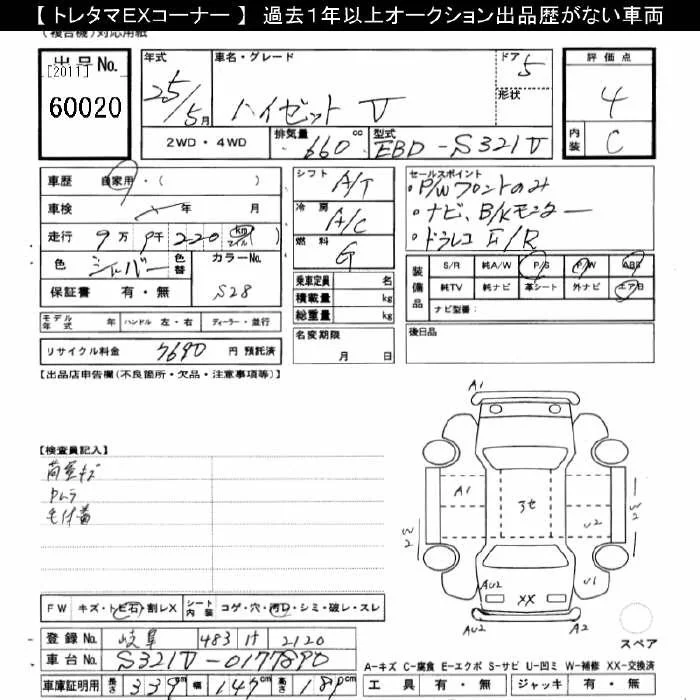 【トレタマEXコーナー】 過去1年以上オークション出品歴がない車両
(複合機)対応用紙
出品No.
[2011]
60020
年式 25/5月
車名・グレード ハイゼット V
ドア 5
形状
評価点 4
内装 C
2WD・4WD
排気量 660 cc
型式 EBD-S321V
車歴 自家用・( )
車検 年 月
走行 9万 9千 220 km マイル
色 シルバー 色替
カラーNo. S28
保証書 有・無
シフト A/T
冷房 A/C
燃料 G
乗車定員 名
積載量 kg
総重量 kg
名変期限
月 日
セールスポイント
・P/Wフロントのみ
・ナビ、B/Kモニター
・ドラレコ F/R
装備品 S/R 純A/W P/S P/W ABS
純TV 純ナビ 革シート 外ナビ エアB
ナビ型番:
モデル年式 年 ハンドル 左・右 ディーラー・並行
後日品
リサイクル料金 7690 円 預託済
【出品店申告欄(不良箇所・欠品・注意事項等)】
【検査員記入】
荷室キズ
カムラ
A1
A1
3セ
W2
W2
U2
U1
AU2
XX
AU2
A2
FW キズ・トビ石・割レX
シート内装 コゲ・穴・汚レ・シミ・破レ・スレ
スペア
登録No. 岐阜 483 け 2120
車台No. S321V-0177890
A-キズ C-腐食 E-エクボ S-サビ U-凹ミ W-補修 XX-交換済
車庫証明用 長さ 339cm 幅 147cm 高さ 189cm
工具 有・無 ジャッキ 有・無